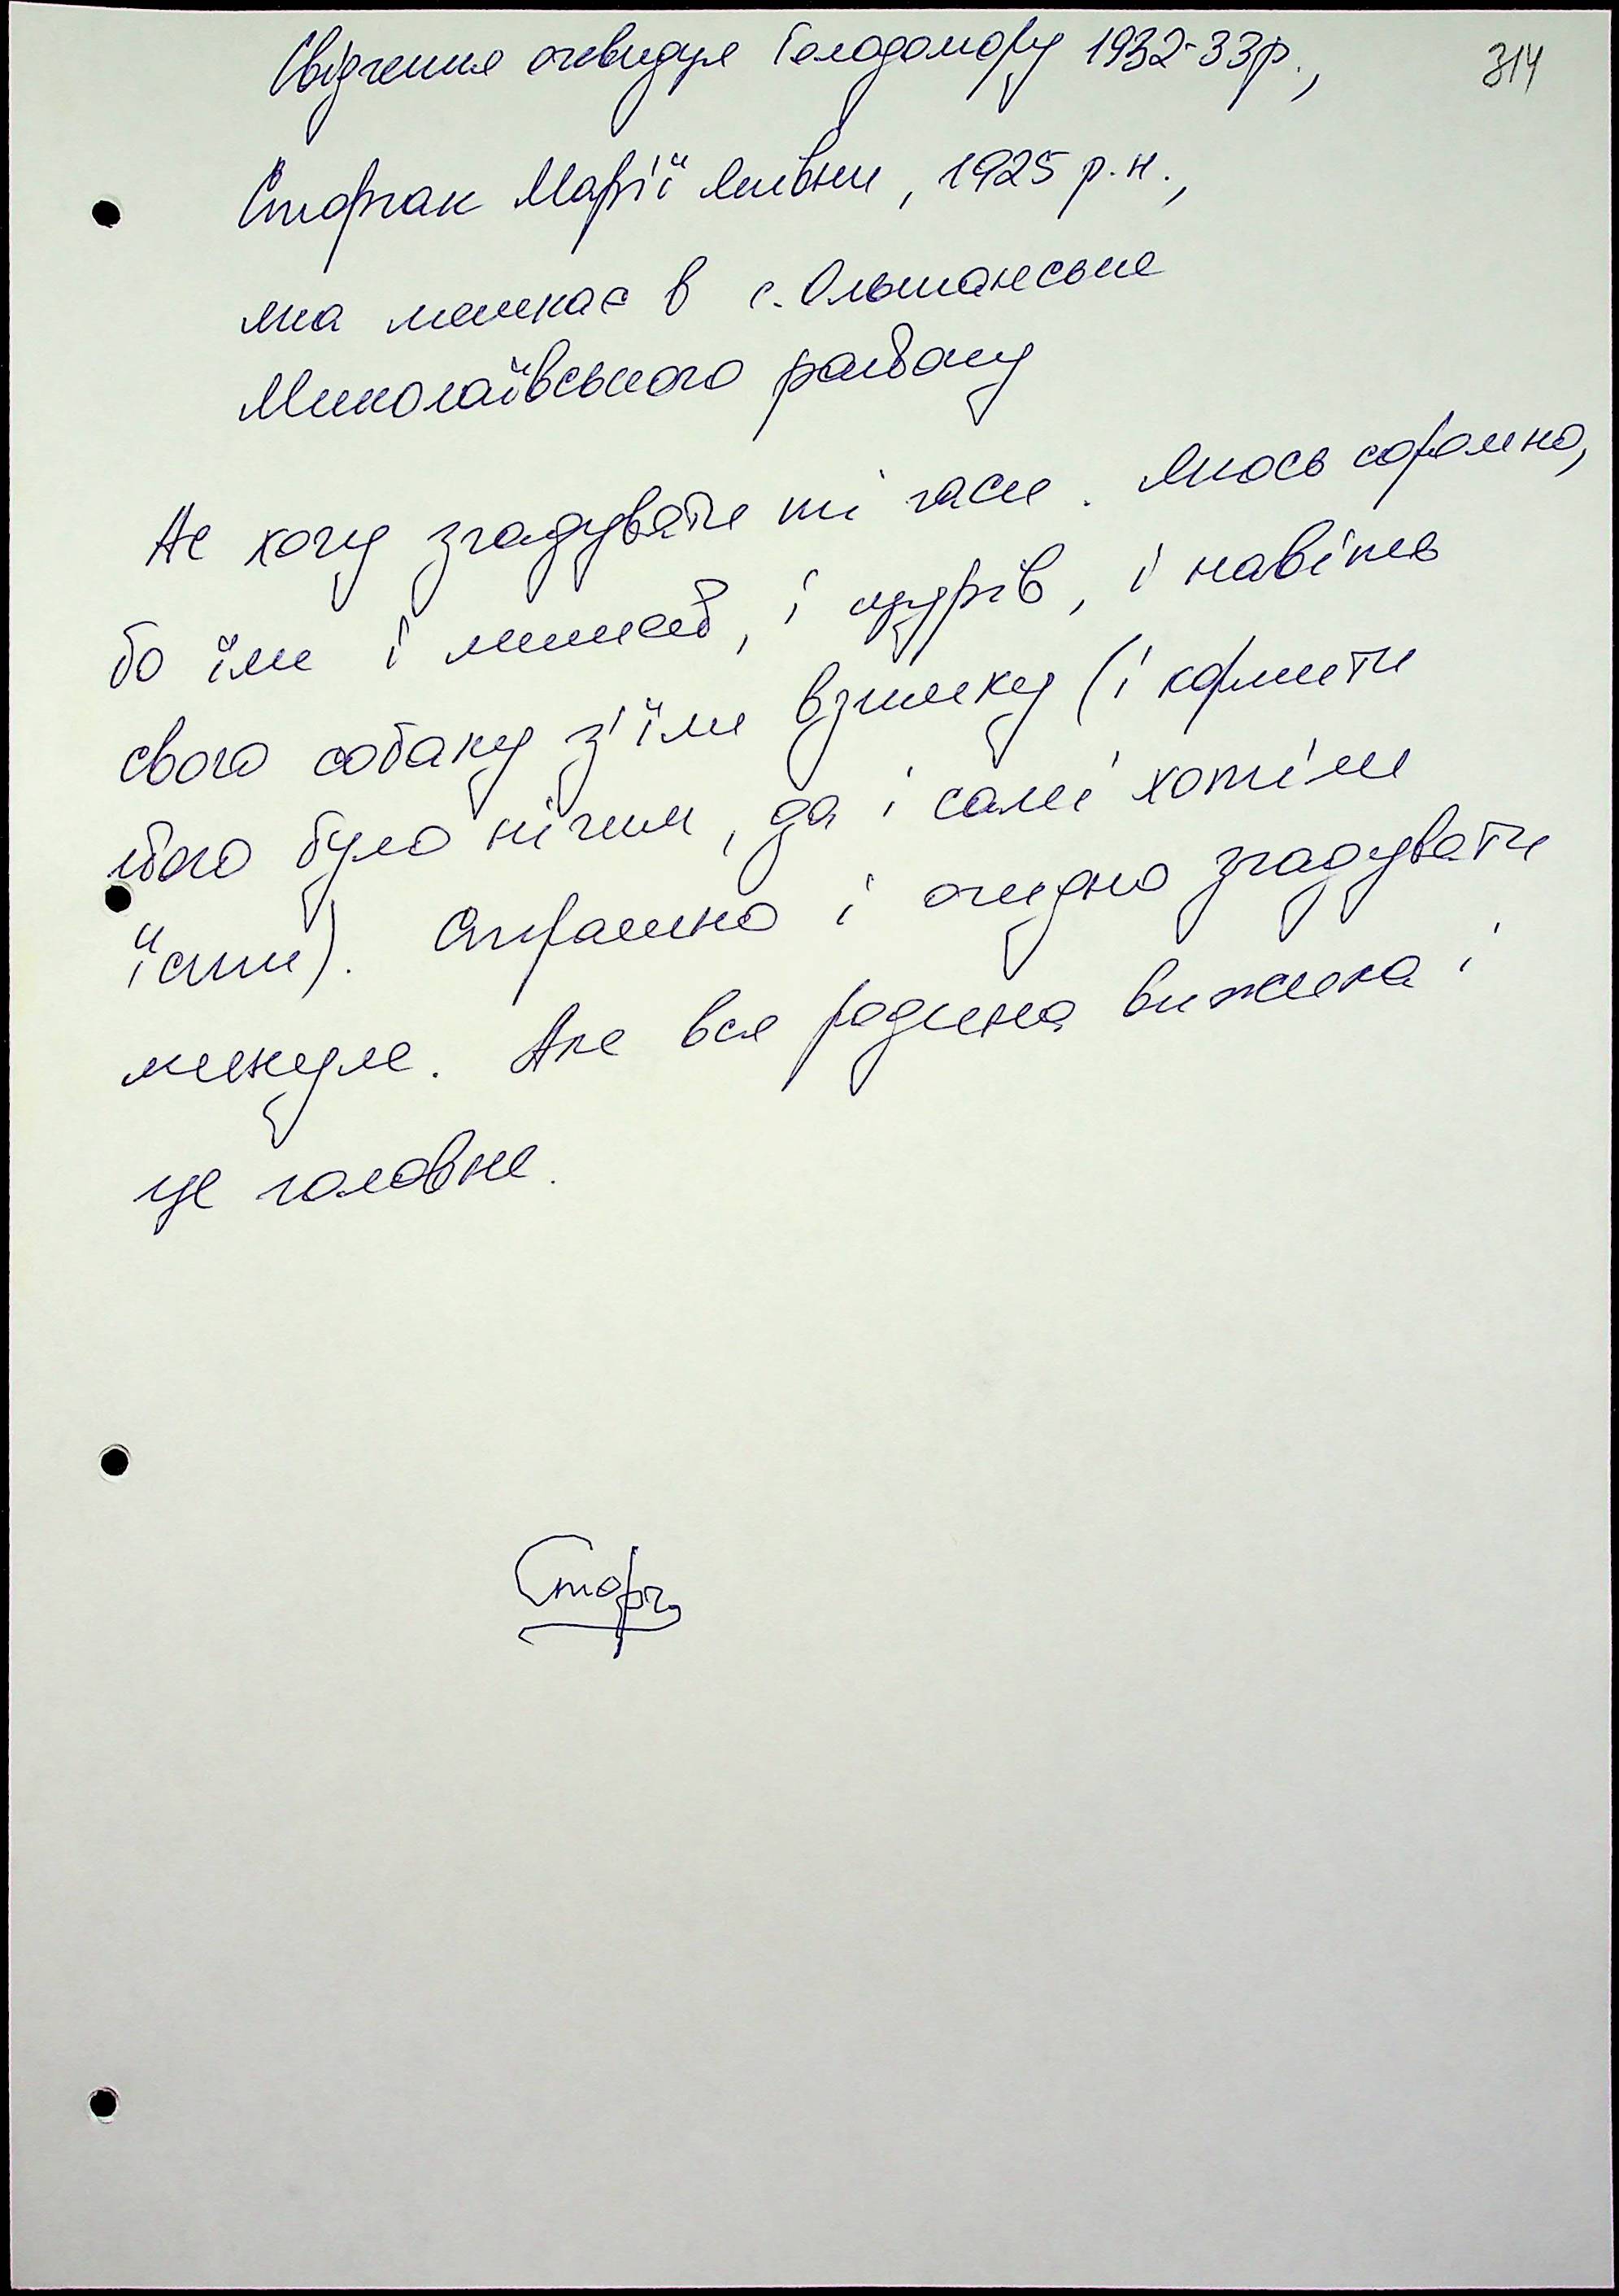 Свідчення очевидця Голодомору 1932-33р.,
314
Сторчак Марії Яківни, 1925 р.н.,
яка мешкає в с. Ольшанське
Миколаївського району
Не хочу згадувати ті часи. Якось соромно,
бо їли і мишей, і щурів, і навіть
свого собаку з'їли взимку (і кормити
його було нічим, да і самі хотіли
їсти). Страшно і огидно згадувати
минуле. Але вся родина вижила і
це головне.
Сторч